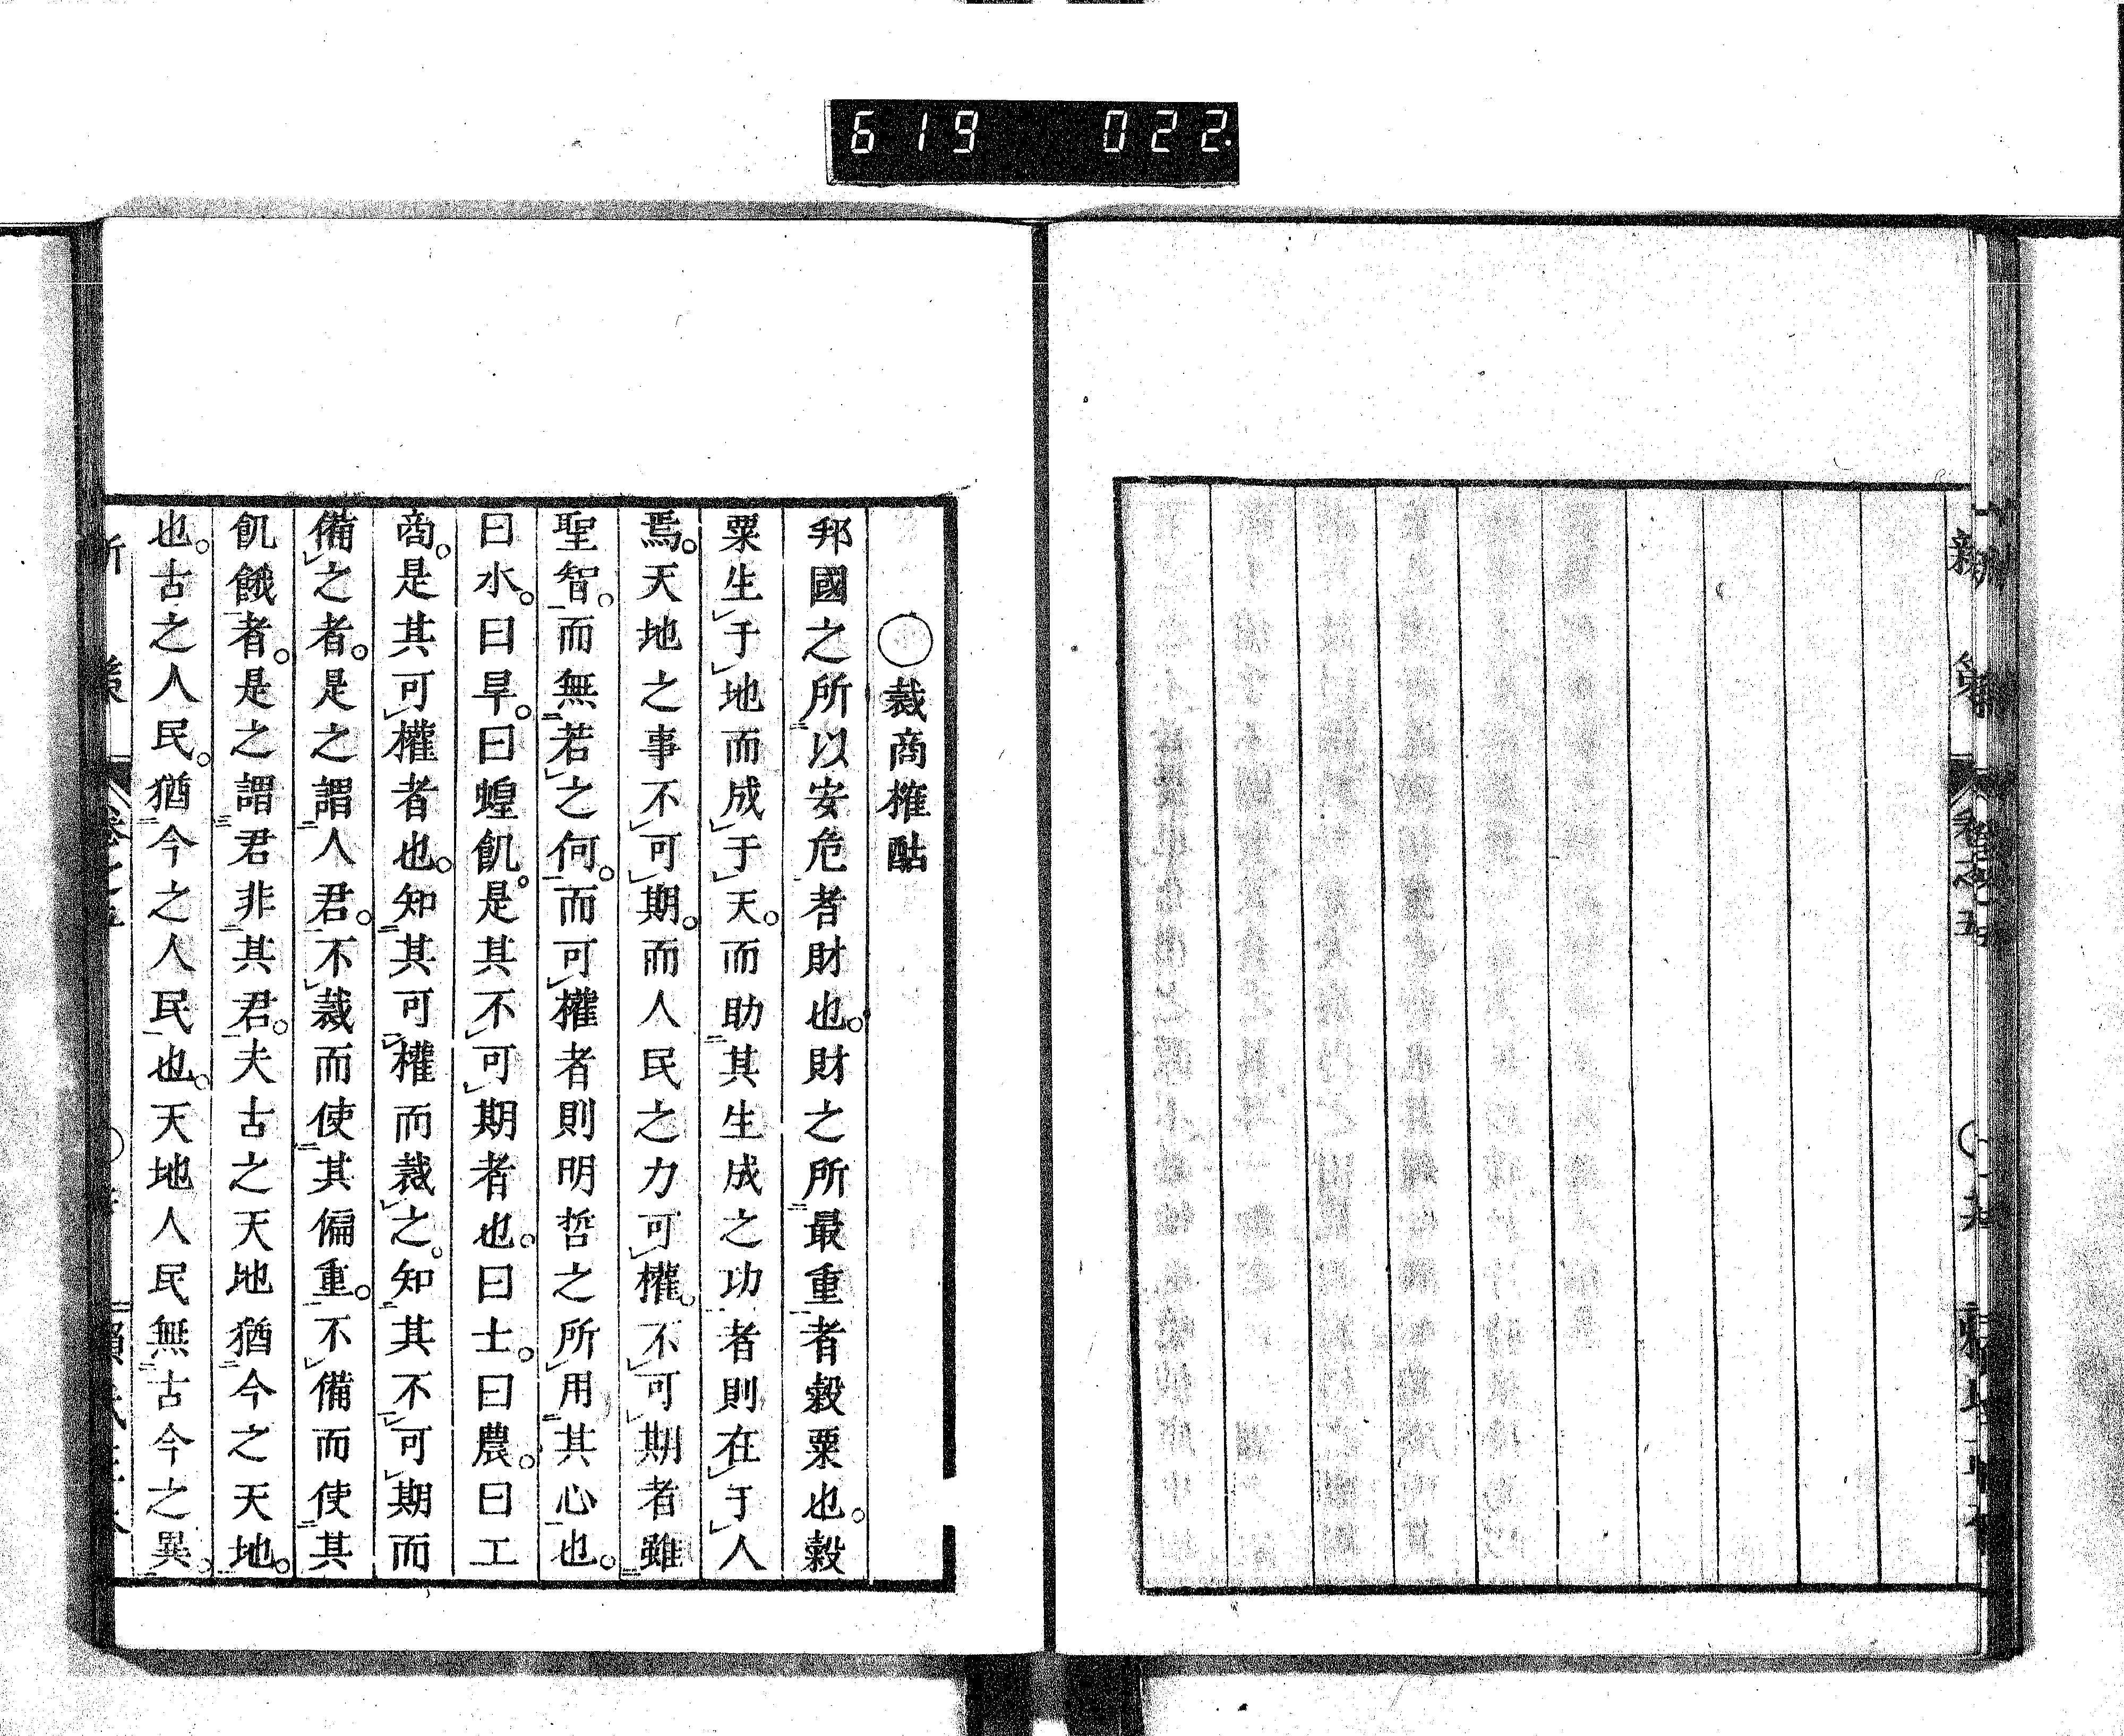 619 022
○裁商榷酤
邦國之所以安危者財也。財之所最重者穀粟也。穀
粟生于地而成于天。而助其生成之功者則在于人
焉。天地之事不可期。而人民之力可權。不可期者雖
聖智。而無若之何。而可權者則明哲之所用其心也。
曰水。曰旱。曰蝗飢。是其不可期者也。曰士。曰農。曰工
商。是其可權者也。知其可權而裁之。知其不可期而
備之者。是之謂人君。不裁而使其偏重。不備而使其
飢餓者。是之謂君非其君。夫古之天地猶今之天地。
也。古之人民。猶今之人民也。天地人民無古今之異。